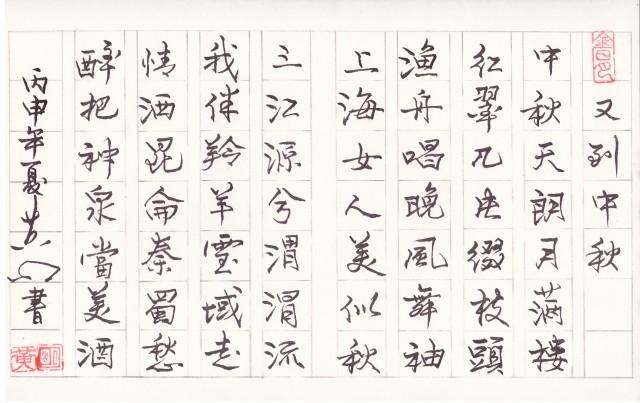 又到中秋
中秋天朗月满楼
红翠几隻缀枝頭
漁舟唱晚風舞袖
上海女人美似秋
三江源兮渭渭流
我伴羚羊靈域走
情洒昆侖秦蜀愁
醉把神泉當美酒
丙申年夏
書